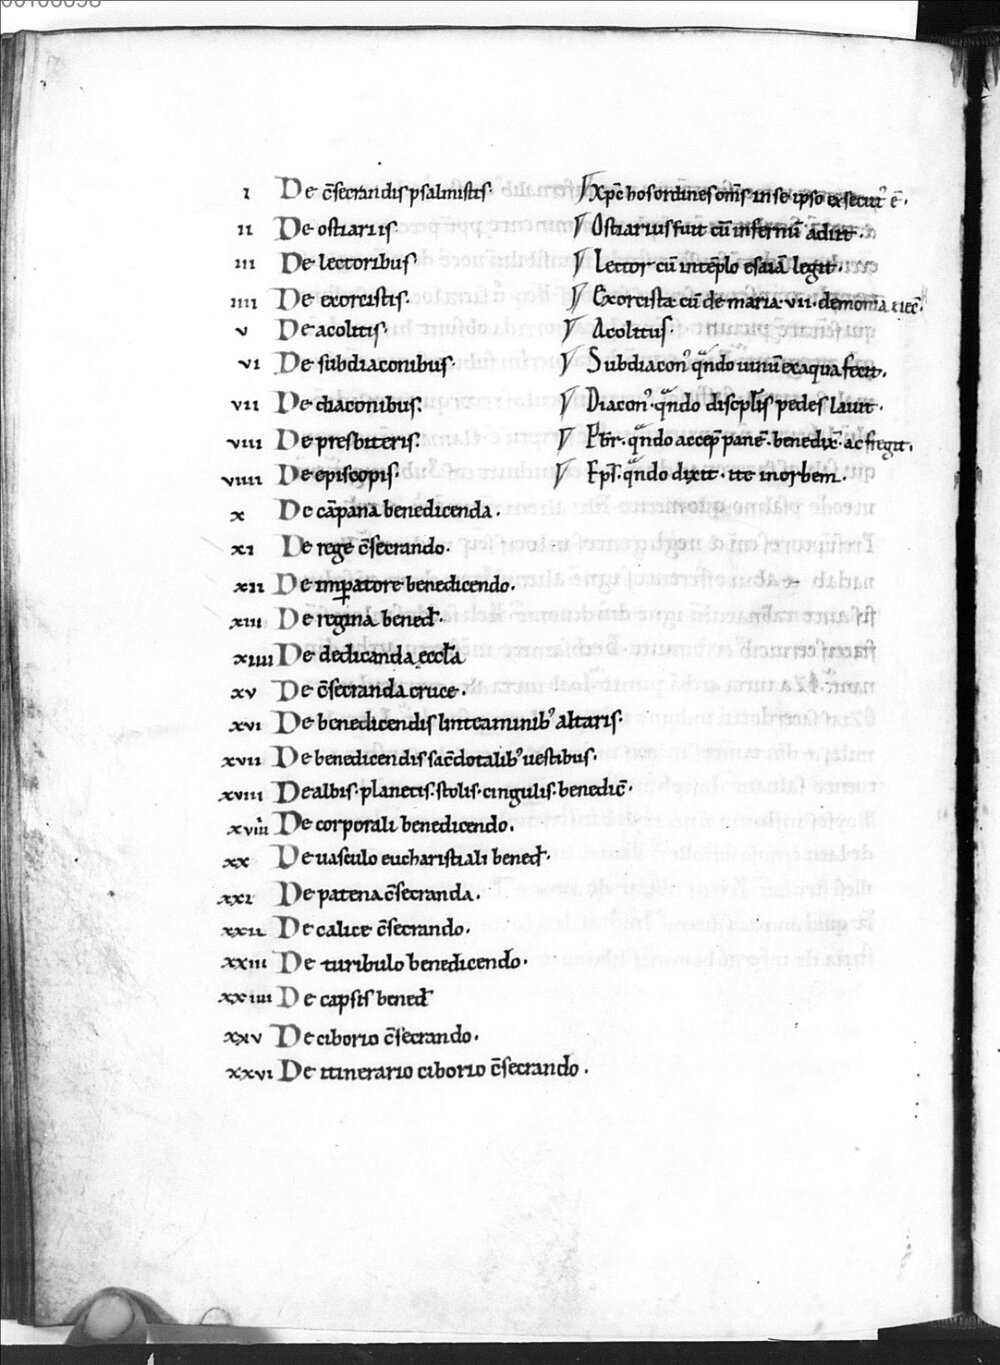 i De c̄secrandis psalmistis
ii De ostiariis
iii De lectoribus
iiii De exorcistis.
v De acolitis.
vi De subdiaconibus.
vii De diaconibus.
viii De presbiteris.
viiii De episcopis
x De cāpana benedicenda.
xi De rege c̄secrando.
xii De imꝑatore benedicendo.
xiii De regina bened̄.
xiiii De dedicanda eccl̄a
xv De c̄secranda cruce.
xvi De benedicendis linteaminib᾿ altaris.
xvii De benedicendis sac̄dotalib᾿ uestibus.
xviii De albis. planetis. stolis. cingulis. benedic̄.
xviiii De corporali benedicendo.
xx De uasculo eucharistiali bened̄.
xxi De patena c̄secranda.
xxii De calice c̄secrando.
xxiii De turibulo benedicendo.
xxiiii De capsis bened̄
xxv De ciborio c̄secrando.
xxvi De itinerario ciborio c̄secrando.
Xp̄c hos ordines om̄s in se ipso ē.
Ostiarius fuit cū infernū adiit.
Lector cū in tēplo esaiā legit.
Exorcista cū de maria. vii. demonia eiec̄.
Acolitus.
Subdiacon᾿ qn̄do uinū ex aqua fecit.
Diacon᾿. qn̄do discipl̄is pedes lauit.
Pb̄r. qn̄do accep̄ panē. benedix̄. ac fregit.
Ep̄s. qn̄do dixit. ite in orbem.